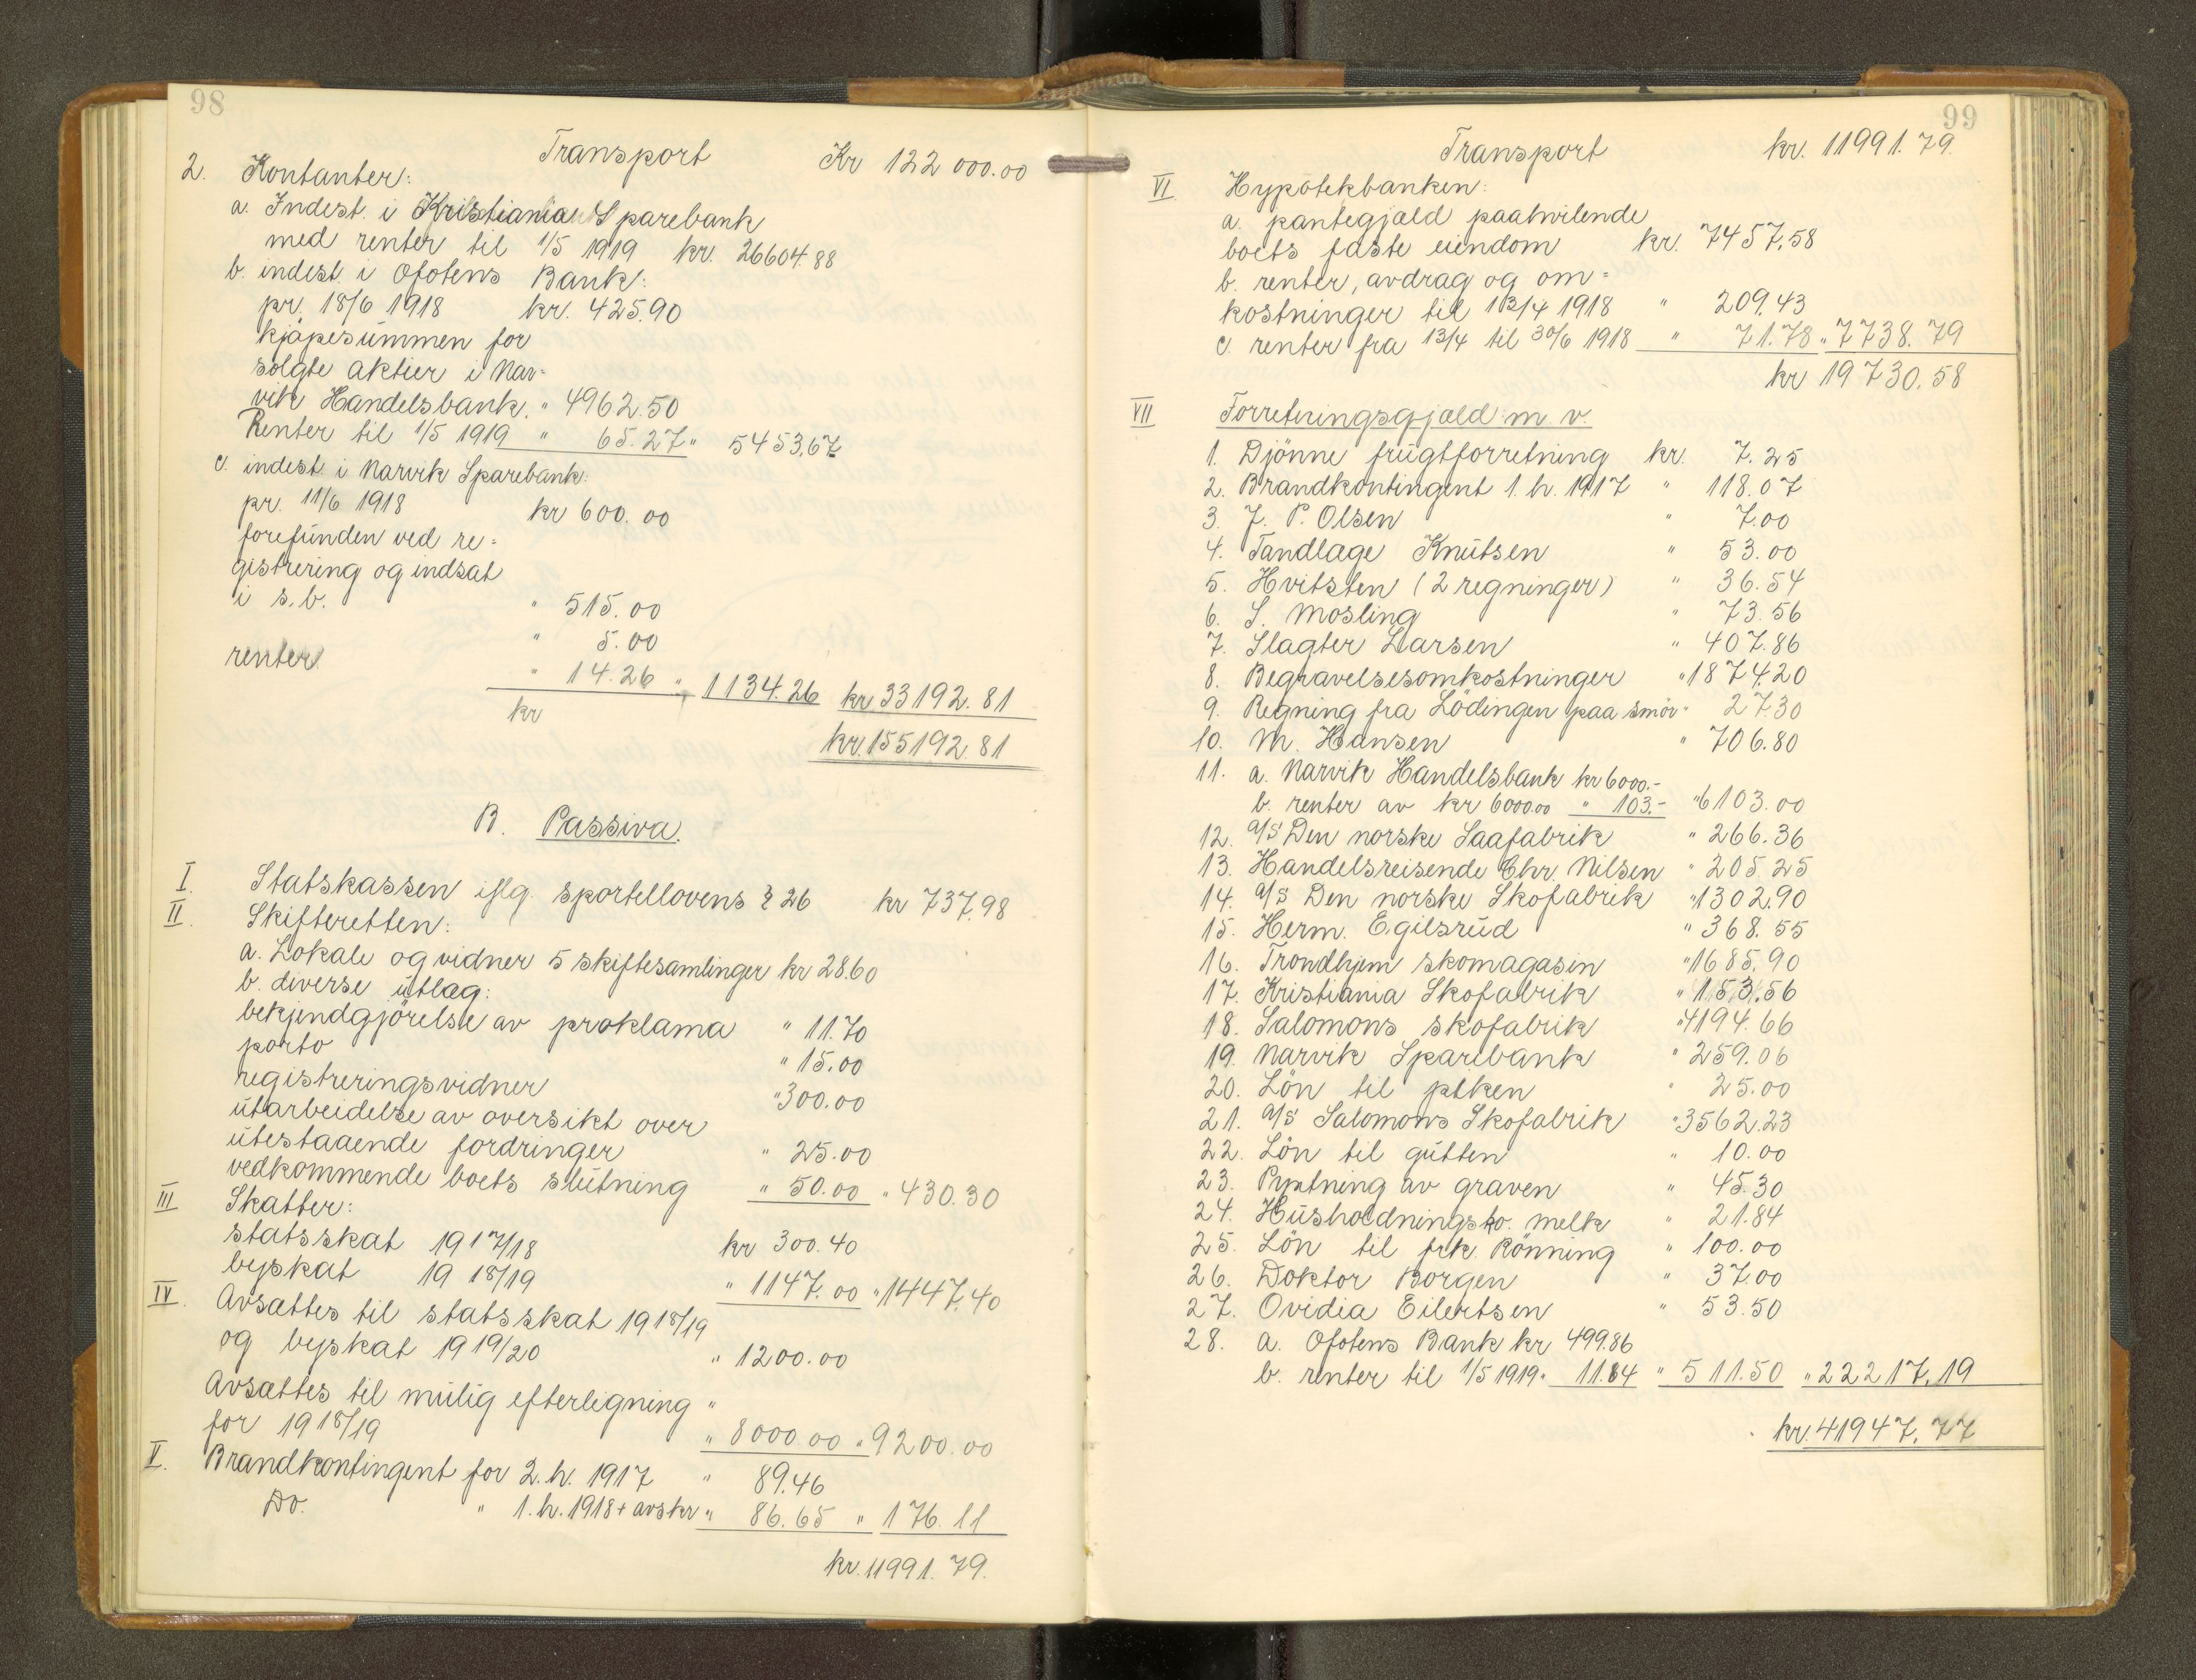 98
Transport Kr 122 000.00
2. Kontanter:
a. Indest. i Kristiania Sparebank
med renter til 1/5 1919 kr. 26604.88
b. indest. i Ofotens Bank:
pr. 18/6 1918 kr. 425.90
kjøpesummen for
solgte aktier i Nar=
vik Handelsbank. " 4962.50
Renter til 1/5 1919 " 65.27 " 5453.67
c. indest. i Narvik Sparebank:
pr. 11/6 1918 kr 600.00
forefunden ved re=
gistrering og indsat
i s.b. " 515.00
" 5.00
renter " 14.26 " 1134.26 kr 33192.81
kr
kr. 155192.81
B. Passiva.
I. Statskassen iflg. sportellovens § 26 kr 737.98
II. Skifteretten:
a. Lokale og vidner 5 skiftesamlinger kr 28.60
b. diverse utlæg:
bekjendgjörelse av proklama " 11.70
porto " 15.00
registreringsvidner " 300.00
utarbeidelse av oversikt over
utestaaende fordringer " 25.00
vedkommende boets slutning " 50.00 " 430.30
III Skatter:
statsskat 1917/18 kr 300.40
byskat 1918/19 " 1147.00 " 1447.40
IV. Avsættes til statsskat 1918/19
og byskat 1919/20 " 1200.00
Avsættes til mulig efterligning "
for 1918/19 " 8000.00 " 9200.00
V. Brandkontingent for 2. h. 1917 " 89.46
Do. " 1. h. 1918 + avskr " 86.65 " 176.11
kr. 11991.79.
99
Transport kr. 11991.79.
VI Hypotekbanken:
a. pantegjæld paahvilende
boets faste eiendom kr. 7457.58
b. renter, avdrag og om=
kostninger til 13/4 1918 " 209.43
c. renter fra 13/4 til 30/6 1918 " 71.78 " 7738.79
kr 19730.58
VII Forretningsgjæld m. v.
1. Djönne frugtforretning kr. 7.25
2. Brandkontingent 1. h. 1917 " 118.07
3. J. P. Olsen " 7.00
4. Tandlæge Knutsen " 53.00
5. Hvitsten (2 regninger) " 36.54
6. S. Mosling " 73.56
7. Slagter Larsen " 407.86
8. Begravelsesomkostninger " 1874.20
9. Regning fra Lödingen paa smör " 27.30
10. M. Hansen " 706.80
11. a. Narvik Handelsbank kr 6000.-
b. renter av kr 6000.00 " 103.- " 6103.00
12. A/S Den norske Saafabrik " 266.36
13. Handelsreisende Chr. Nilsen " 205.25
14. A/S Den norske Skofabrik " 1302.90
15. Herm. Egilsrud " 368.55
16. Trondhjem skomagasin " 1685.90
17. Kristiania Skofabrik " 153.56
18. Salomons skofabrik " 4194.66
19. Narvik Sparebank " 259.06
20. Lön til piken " 25.00
21. A/S Salomons Skofabrik " 3562.23
22. Lön til gutten " 10.00
23. Pyntning av graven " 45.30
24. Husholdningsko. melk " 21.84
25. Lön til frk. Rönning " 100.00
26. Doktor Borgen " 37.00
27. Ovidia Eilertsen " 53.50
28. a. Ofotens Bank kr 499.86
b. renter til 1/5 1919 " 11.64 " 511.50 " 22217.19
kr. 41947.77